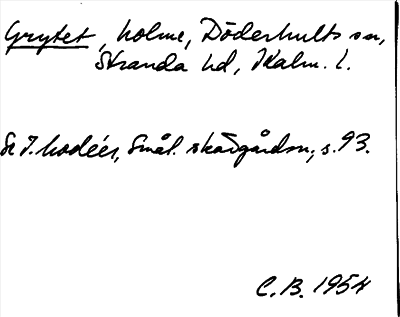 Grytet, holme, Döderhults sn,
Stranda hd, Kalm. l.
Se T. Modéer, Smål. skärgårdsn, s. 93.
C. B. 1954